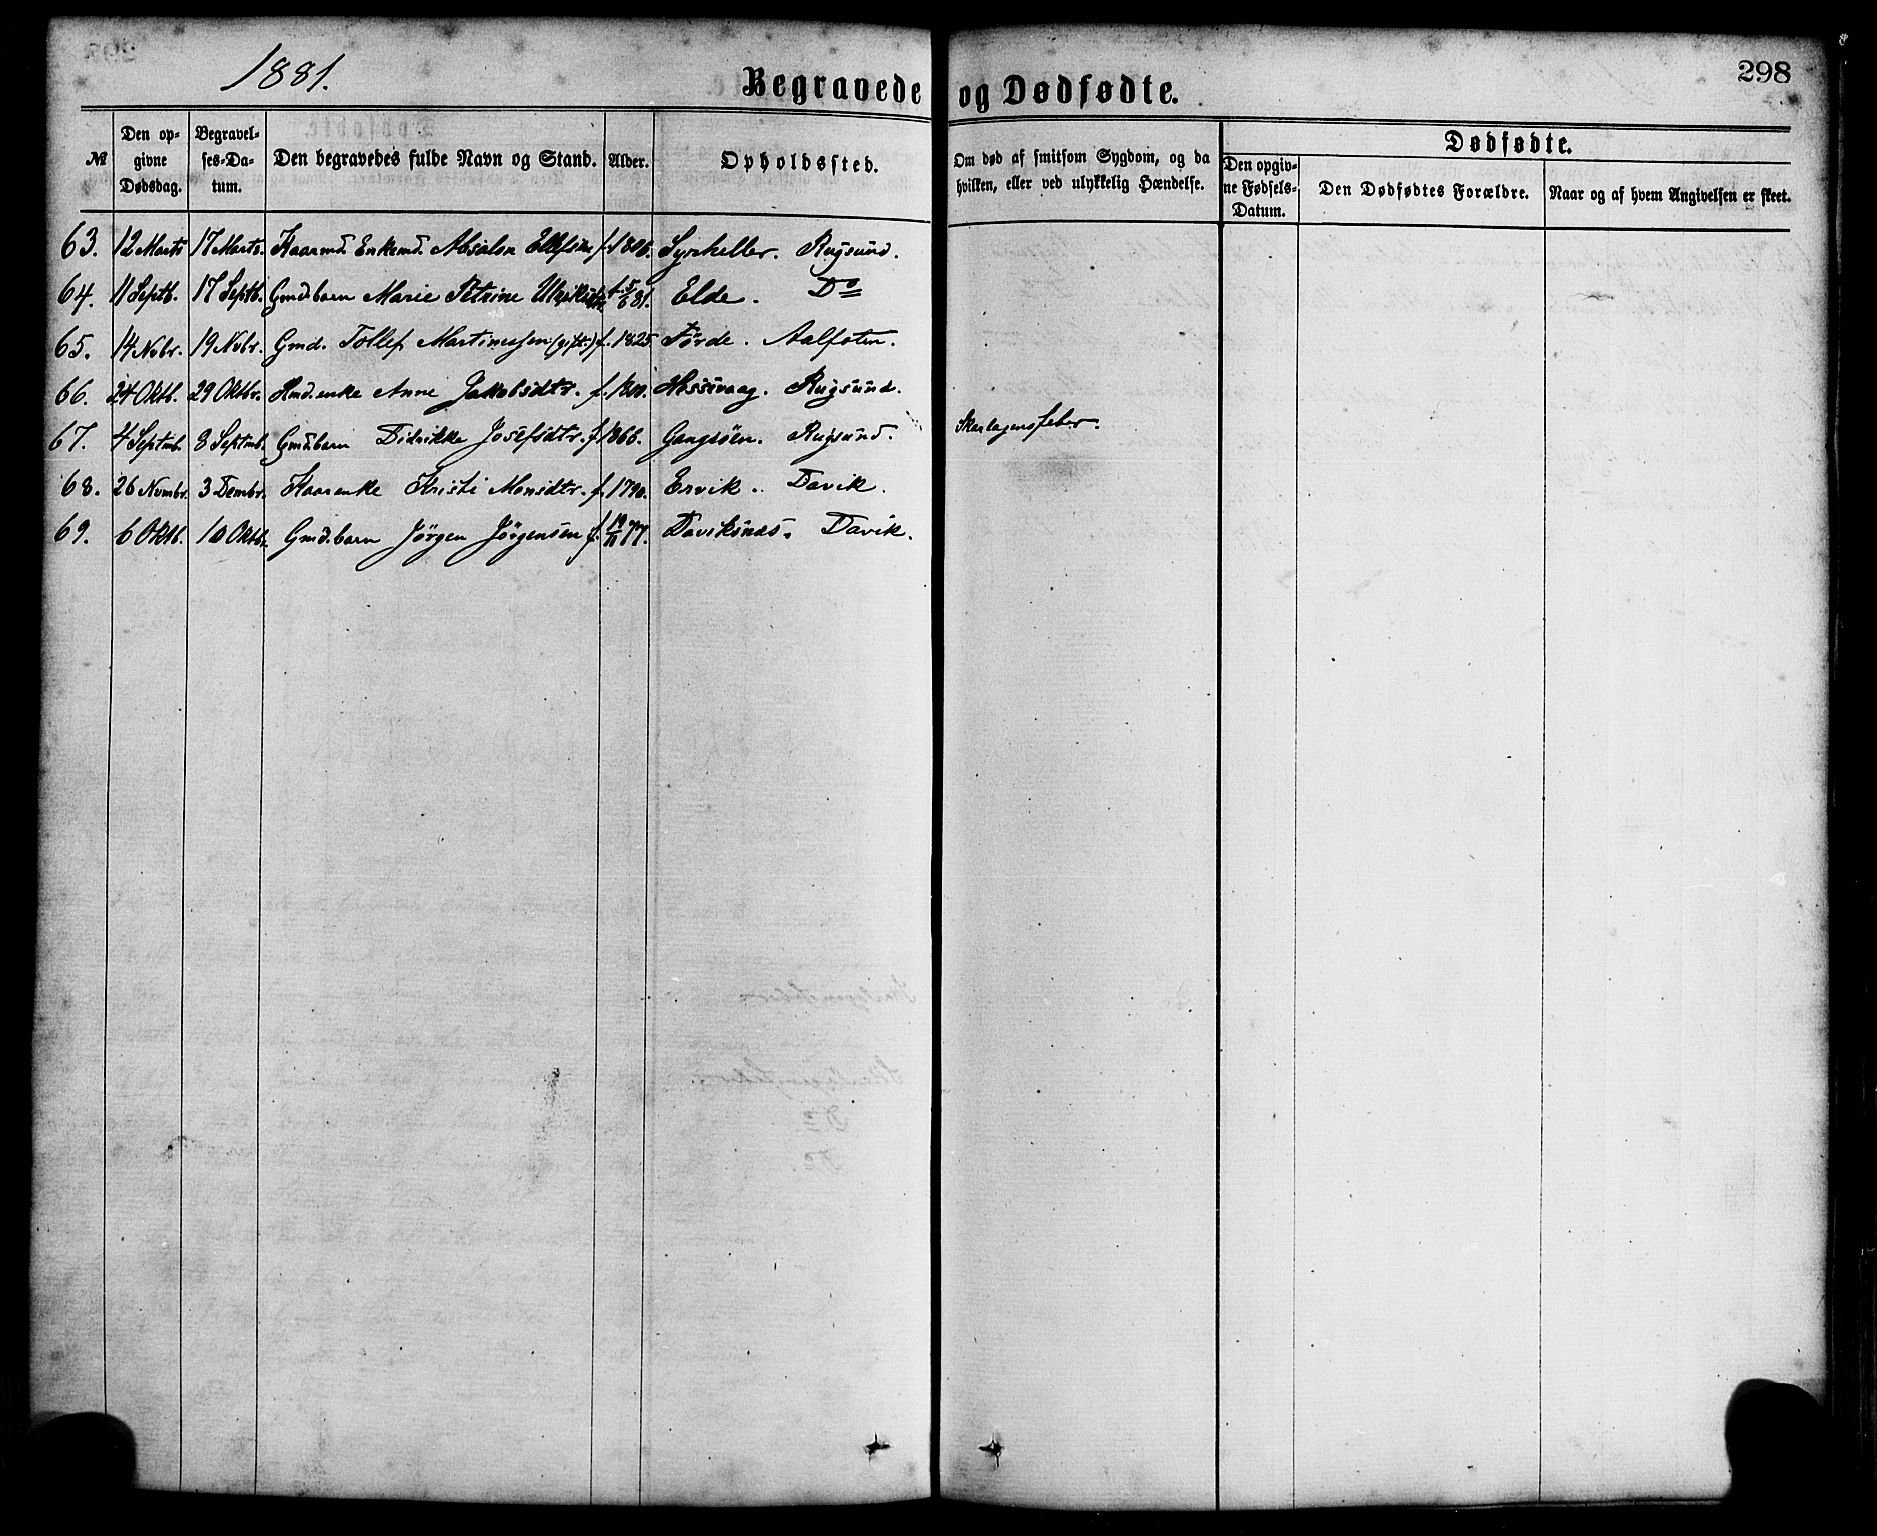 1881.
Begravede og Dødfødte.
298
№
Den opgivne Dødsdag.
Begravelses-Datum.
Den begravedes fulde Navn og Stand.
Alder.
Opholdssted.
Om død af smitsom Sygdom, og da hvilken, eller ved ulykkelig Hændelse.
Dødfødte.
Den opgivne Fødsels-Datum.
Den Dødfødtes Forældre.
Naar og af hvem Angivelsen er skeet.
63. 12 Marts 17 Marts. Kaarmd. Enkemd. Absalon Ellefsen f. 1806. Rugsund.
64. 11 Septb. 17 Septb. Gmdbarn Marie Petrine f. 5/6 81. Elde. Do
65. 14 Nvbr. 19 Nvbr. Gmd. Tollef Martinussen (gift.) f. 1825 Førde. Aalfoten.
66. 24 Oktb. 29 Oktbr. Hmd.enke Anne Jakobsdtr. f. 1800. Hessevaag. Rugsund.
67. 4 Septmb. 8 Septmb. Gmdbarn Didrikke Josefsdtr. f. 1866. Gangsøen. Rugsund. Skarlagensfeber.
68. 26 Nvmbr. 3 Dembr. Kaarenke Kristi Monsdtr. f. 1790. Ervik. Davik.
69. 6 Oktb. 10 Oktb. Gmd.barn Jørgen Jørgensen f. 19/11 77. Daviksnæs. Davik.